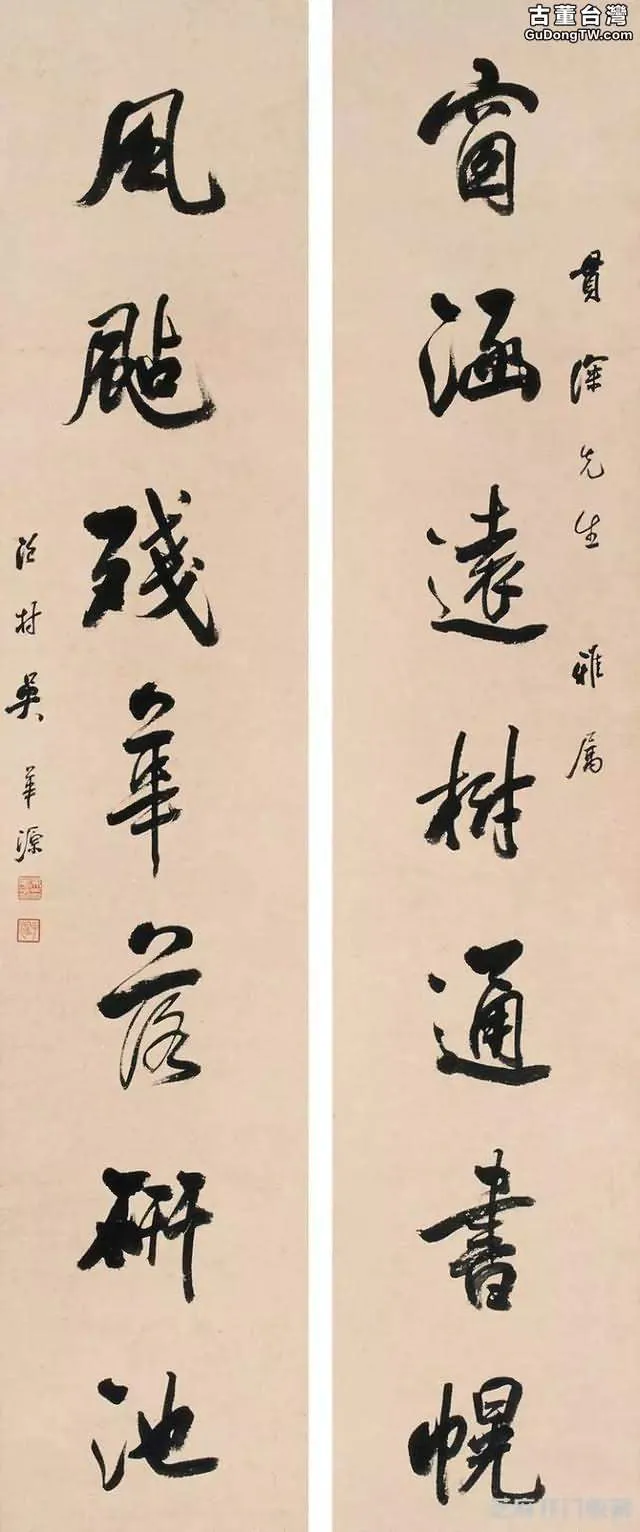 古董台灣
GuDongTW.com
貫深先生雅属
窗涵遠樹通書幌
風颭殘華落研池
吳華源